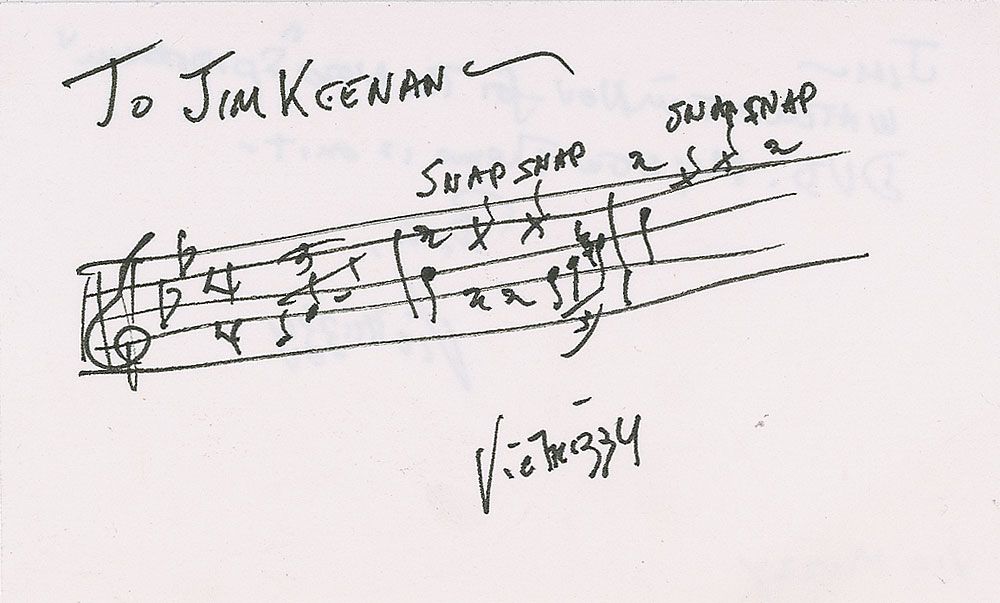 To JIM KEENAN
SNAP SNAP
SNAP SNAP
4
4
3
3
Vic Mizzy